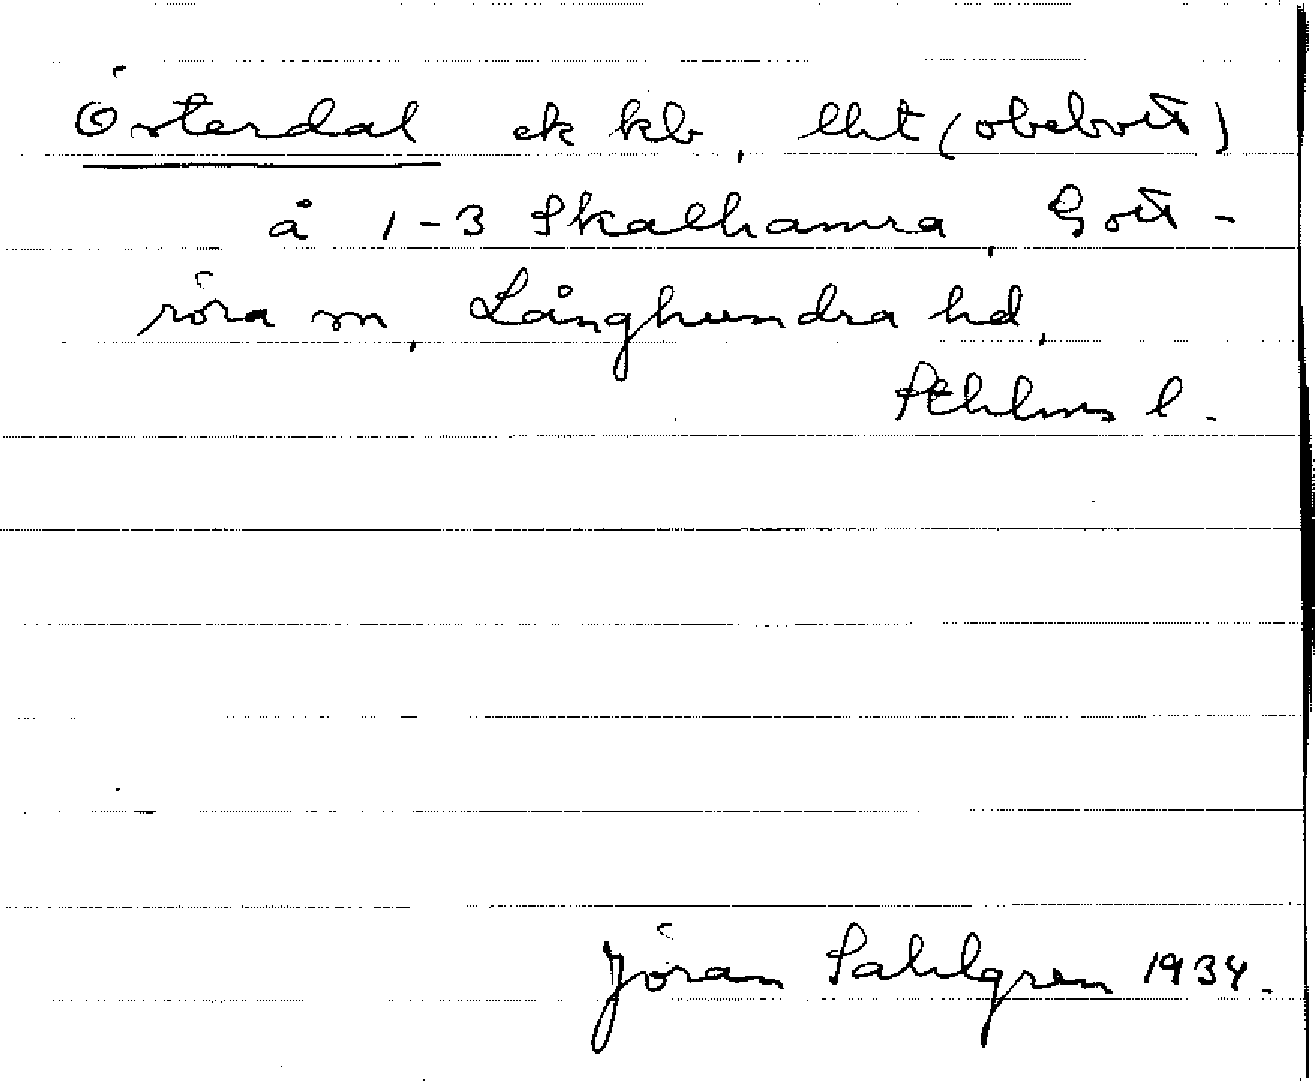 Österdal ek kb, lht (obebott)
å 1-3 Skalhamra, Gott-
röra sn, Långhundra hd,
Sthlms l.
Jöran Sahlgren 1934.